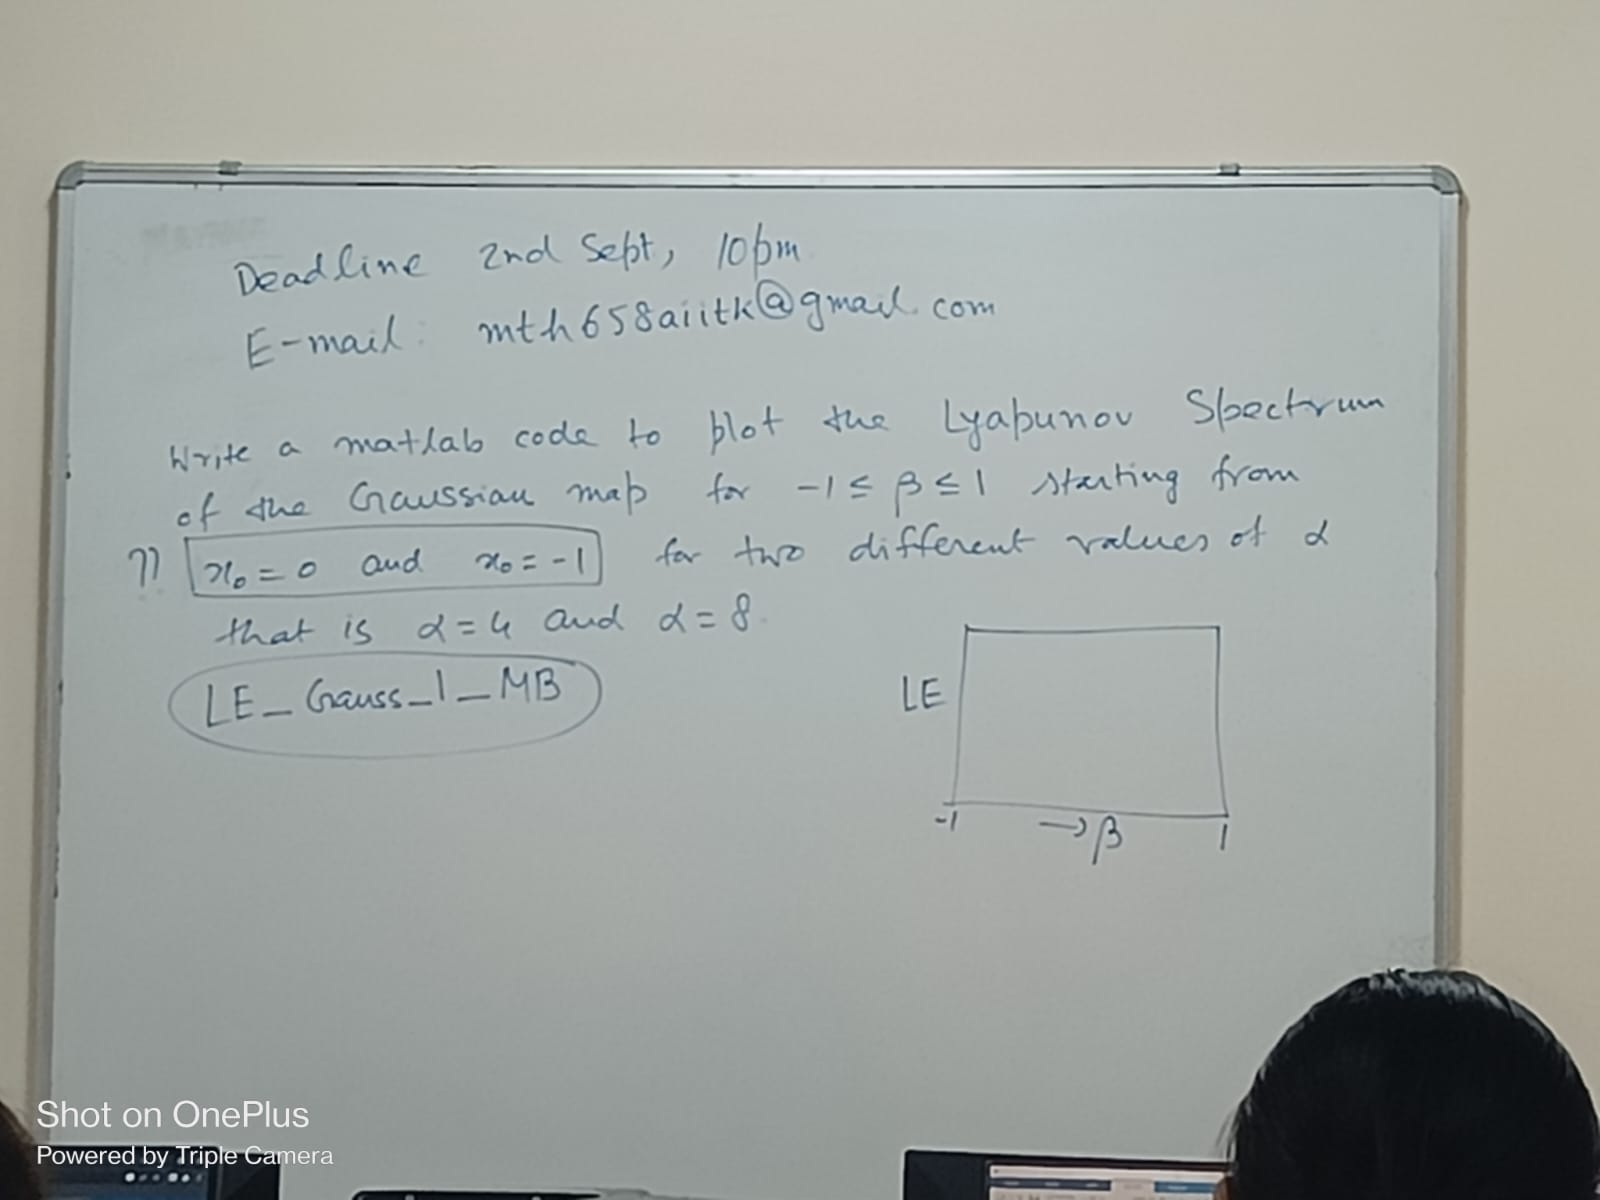 Deadline 2nd Sept, 10pm
E-mail: mth658aiitk@gmail.com
Write a matlab code to plot the Lyapunov Spectrum
of the Gaussian map for -1 ≤ β ≤ 1 starting from
?? x₀ = 0 and x₀ = -1 for two different values of α
that is α = 4 and α = 8.
LE_Gauss_1_MB
LE
-1 → β 1
Shot on OnePlus
Powered by Triple Camera